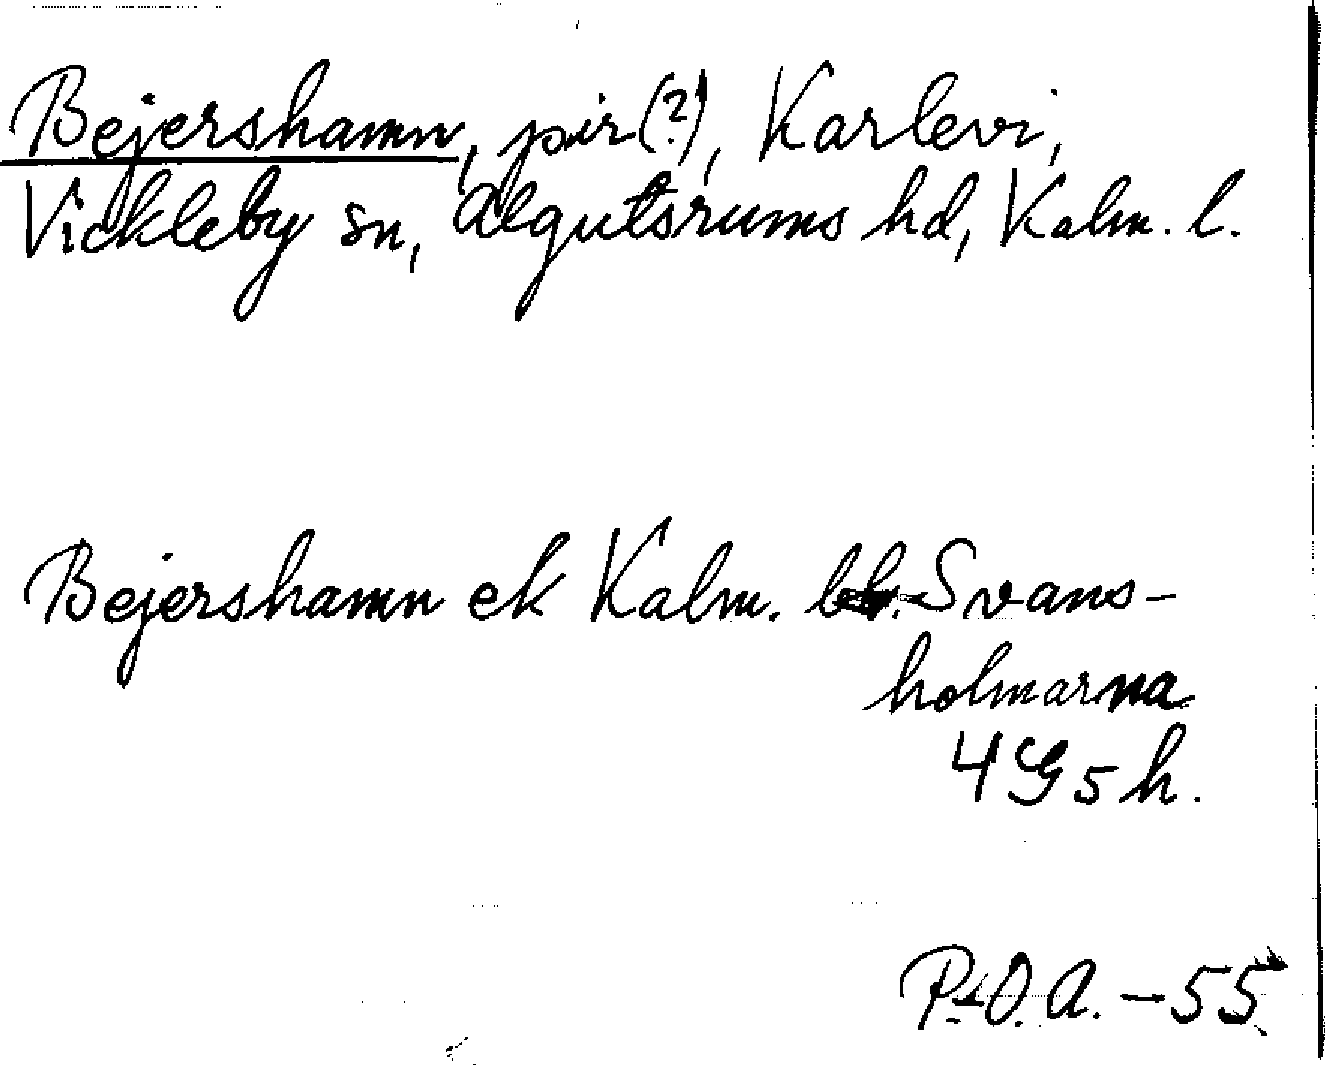 Bejershamn, pir(?), Karlevi,
Vickleby sn, Algutsrums hd, Kalm. l.
Bejershamn ek Kalm. bl. Svans-
holmarna
4G5h.
P.O.A. -55